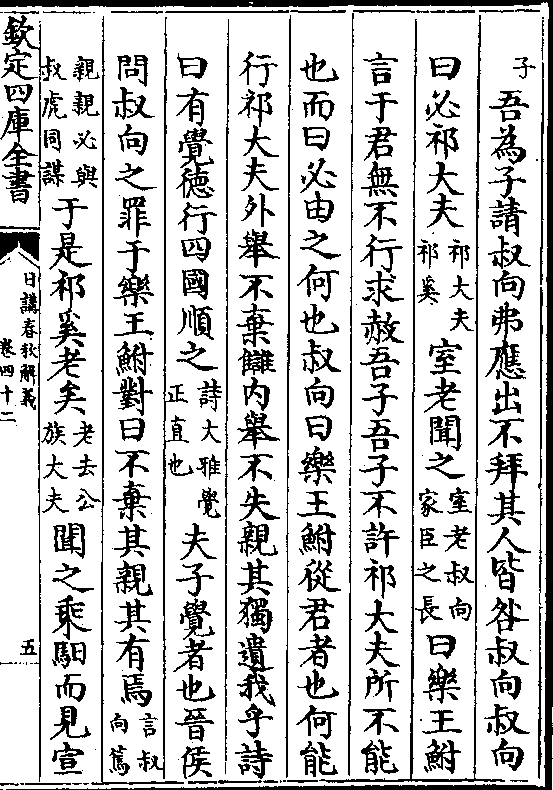 子吾為子請叔向弗應出不拜其人皆咎叔向叔向
曰必祁大夫祁大夫祁奚室老聞之室老叔向家臣之長曰樂王鮒
言于君無不行求赦吾子吾子不許祁大夫所不能
也而曰必由之何也叔向曰樂王鮒從君者也何能
行祁大夫外舉不棄讎内舉不失親其獨遺我乎詩
曰有覺德行四國順之詩大雅覺正直也夫子覺者也晉侯
問叔向之罪于樂王鮒對曰不棄其親其有焉言叔向篤
親親必與叔虎同謀于是祁奚老矣老去公族大夫聞之乘馹而見宣
欽定四庫全書
日講春秋解義
卷四十二
五